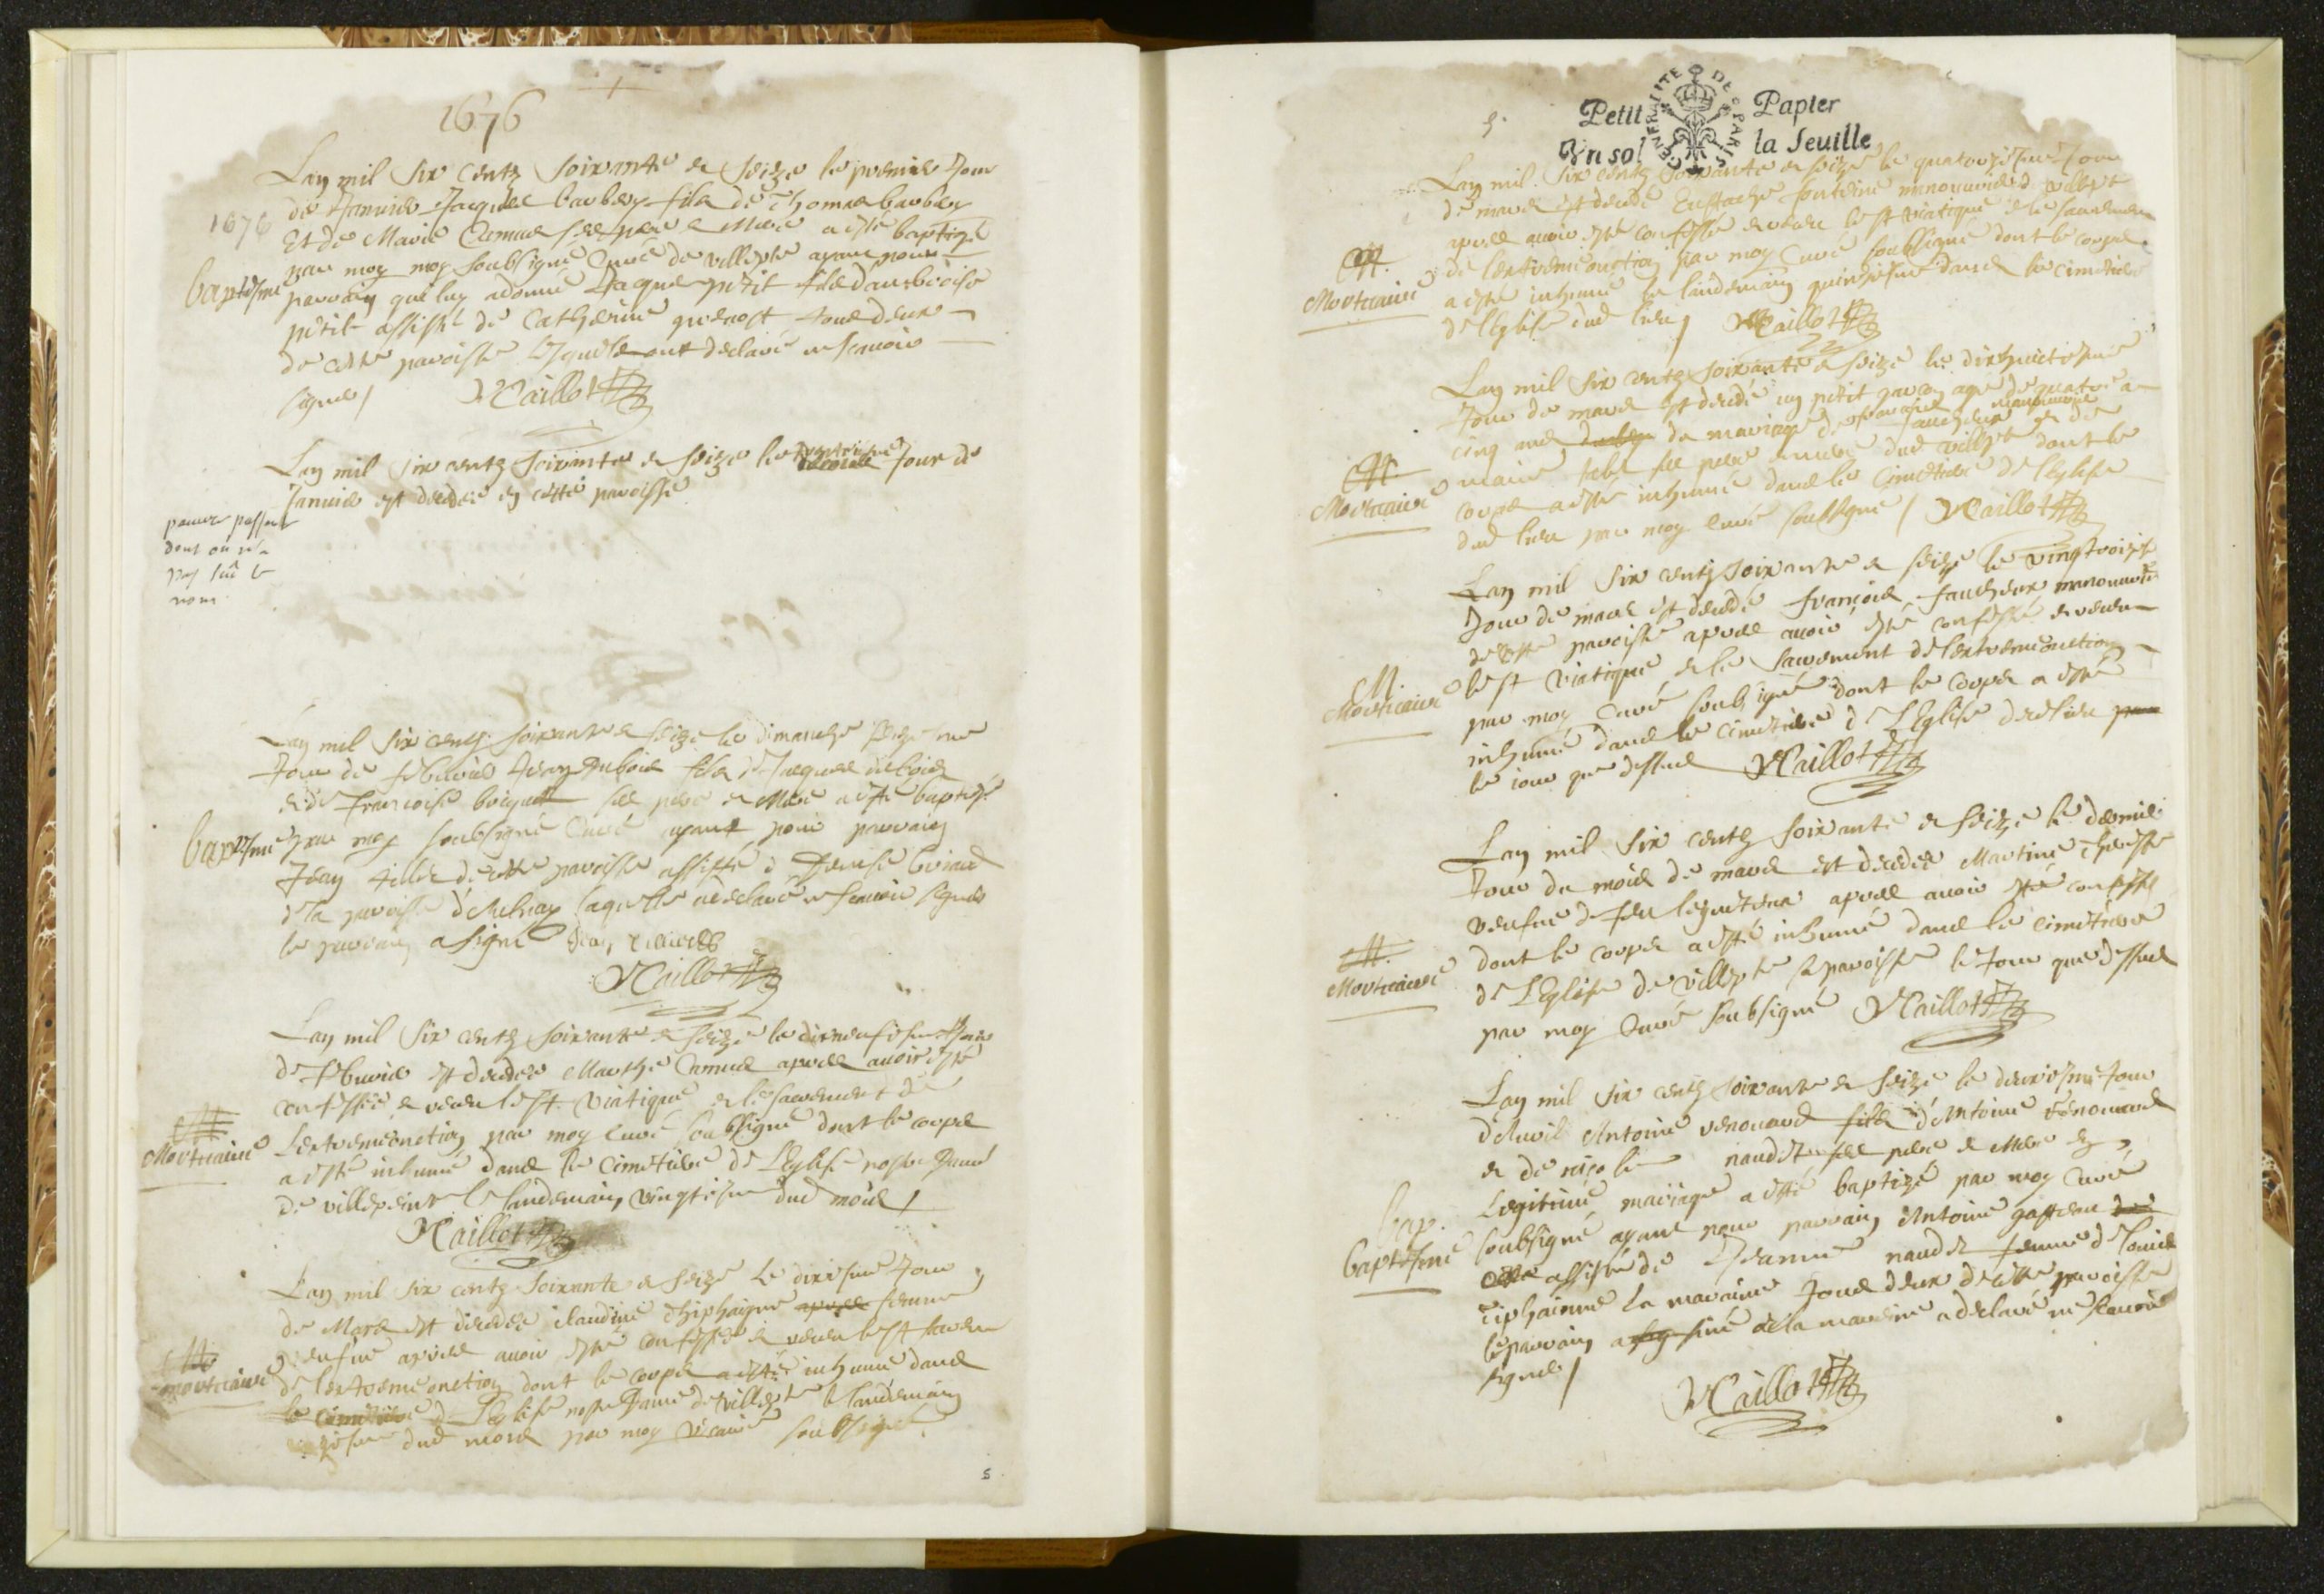 1676
Lan mil six centz soixante et seize le premier Jour
de Janvier Jacques barbery fils de Thomas barbery
1676
Et de Marie Camus ses pere et Mere a esté baptizé
par moy moy soubsigné Curé de villepte ayant pour
baptesme
parrain qui luy a donné Jacques petit fils d'ambroise
petit assisté de Catherine tous deux
de cette paroisse lesquels ont declaré ne scavoir
signer / NCaillot
Lan mil six centz soixante et seize le Jour de
Janvier est decedée en cette paroisse
pauvre passant
dont on n'a
pas sçu le
nom
Lan mil six centz soixante et seize le dimanche seiziesme
Jour de febvrier Jean Dubois fils de Jacques dubois
et de francoise ses pere et Mere a esté baptizé
baptesme
par moy soubsigné Curé ayant pour parrain
Jean de cette paroisse assisté de Denise
de la paroisse d'Aulnay laquelle a declaré ne scavoir signer
le parrain a signé Jean
NCaillot
Lan mil six centz soixante et seize le dixneufiesme Jour
de febvrier est decedée Marthe Camus apres avoir esté
confessée et receu le st viatique et le sacrement de
Mortuaire
Lextremeonction par moy Curé soubsigné dont le corps
a esté inhumé dans le Cimetiere de LEglise nostre Dame
de villepeinte le landemain vingtiesme dud mois /
NCaillot
Lan mil six centz soixante et seize le dixiesme Jour
de Mars est decedée claudine Thiphaigne apres femme
apres avoir esté confessée et receu le st sacrem
Mortuaire
de lextremeonction dont le corps a esté inhumé dans
le Cimetiere de LEglise nostre Dame de villepte le landemain
dud mois par moy vicaire soubsigné
5
5.
Petit Papier
Un sol la feuille
GENERALITE DE PARIS
Lan mil six centz soixante et seize le quatorziesme Jour
de mars est decedé Eustache fonteine manouvrier a villepte
apres avoir esté confessé et receu le st viatique et le sacrement
M.
de lextremeonction par moy Curé soubsigné dont le corps
Mortuaire
a esté inhumé le landemain quinziesme dans le cimetiere
de lEglise dud lieu / NCaillot
Lan mil six centz soixante et seize le dixhuictiesme
Jour de mars est decedé un petit garçon agé de quatre a
cinq ans de mariage de francois faucheur manouvrier et de
M.
marie ses pere et mere dud villepte dont le
Mortuaire
corps a esté inhumé dans le Cimetiere de lEglise
dud lieu par moy Curé soubsigné / NCaillot
Lan mil six centz soixante et seize le vingtroisies
Jour de mars est decedé francois faucheur manouvrier
de cette paroisse apres avoir esté confessé et receu
M.
le st viatique et le sacrement de lextremeonction
Mortuaire
par moy Curé soubsigné dont le corps a esté
inhumé dans le Cimetiere de LEglise dud lieu
le iour que dessus NCaillot
Lan mil six centz soixante et seize le dernier
Jour du mois de mars est decedée Martine
veufve de feu apres avoir esté confessée
M.
dont le corps a esté inhumé dans le cimetiere
Mortuaire
de LEglise de villepte sa paroisse le Jour que dessus
par moy Curé soubsigné NCaillot
Lan mil six centz soixante et seize le deuxiesme Jour
d'Avril Antoine renouard fils d'Antoine renouard
et de nicole naudet ses pere et Mere en
bap.
Legitime mariage a esté baptizé par moy Curé
baptesme
soubsigné ayant pour parrain Antoine gasteau
assisté de Jeanne naudet femme de louis
Tiphainne La maraine tous deux de cette paroisse
le parrain a siné et la maraine a declaré ne scavoir
signer /
NCaillot